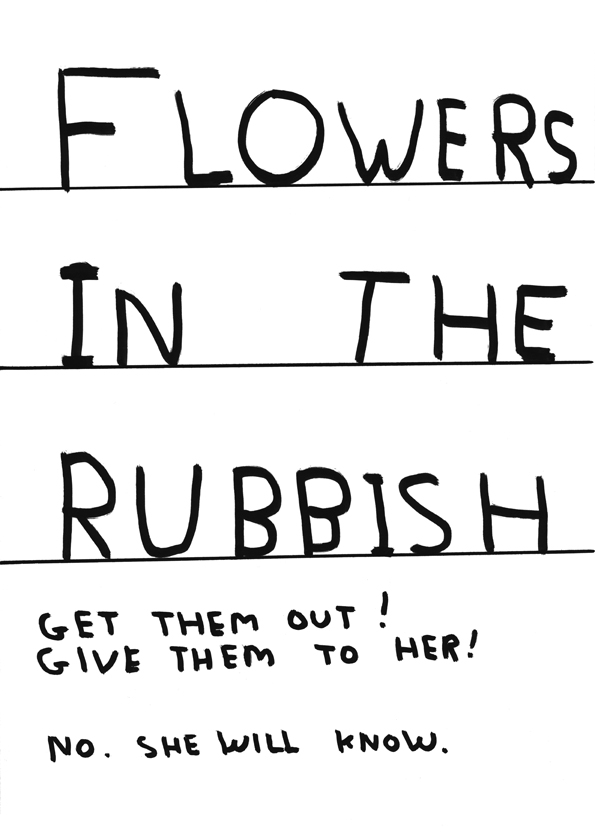 FLOWERS
IN THE
RUBBISH
GET THEM OUT!
GIVE THEM TO HER!
NO. SHE WILL KNOW.